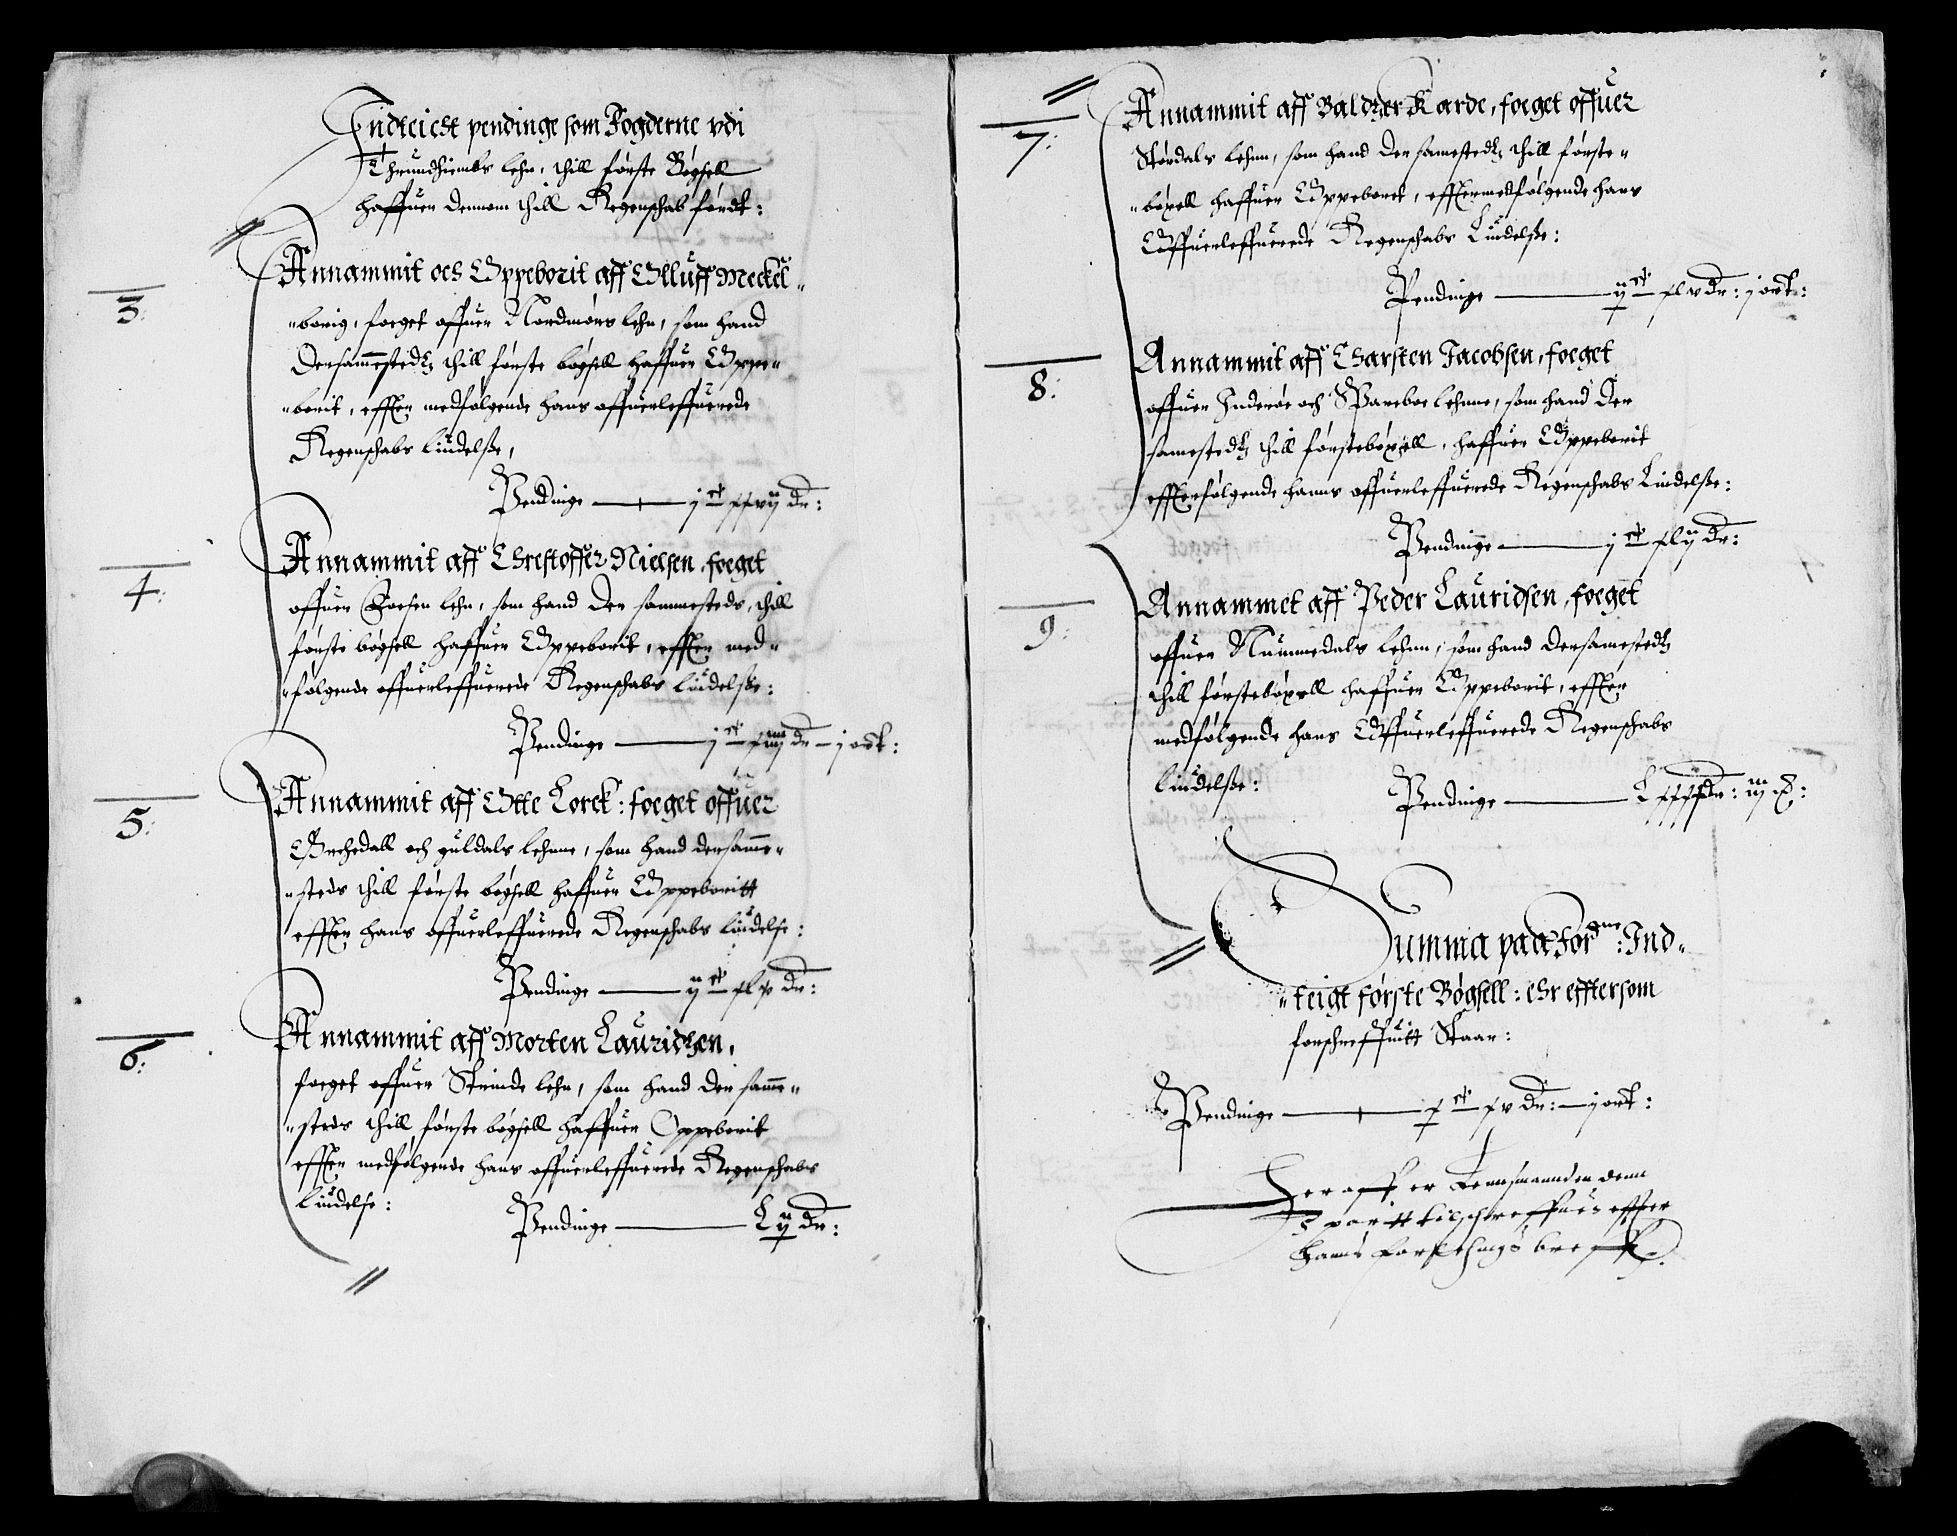 Indteicht pendinge som Fogderne vdi
Thrundhiembs lehn, thill første Bøgsell
haffuer dennom thill Regenschab førdt:
3:
Annammit och Oppeborit aff Olluff Meckel-
-borig, foeget offuer Nordmørs lehn, som hand
dersammestedtz thill første bøgsell haffuer Oppe-
-borit, effter medfølgende hans offuerleffuerede
Regenschabs liudelsze,
Pendinge — j ct xxvij dr:
4:
Annammit aff Christoffer Nielsen, foeget
offuer Foesen lehn, som hand der sammesteds, thill
første bøgsell haffuer Oppeborit, effter med-
-følgende offuerleffuerede Regenschabs liudelsze:
Pendinge — j ct dr — j ort:
5:
Annammit aff Otte Lorck: foeget offuer
Orchedall och guldals lehnne, som hand dersamme-
-steds thill første bøgsell haffuer Oppeboritt
effter hans offuerleffuerede Regenschabs liudelse:
Pendinge — ij ct xlv dr:
6:
Annammit aff Morten Lauridtzen,
foeget offuer Strinde lehn, som hand der samme-
-steds thill første bøgsell haffuer Oppeborit
effter medfølgende hans offuerleffuerede Regenschabs
liudelse:
Pendinge — Lij dr:
7:
Annammit aff Baldtzer Karde, foeget offuer
Størdals lehnn, som hand der samestedtz thill første-
-bøxell haffuer Oppeborit, efftermedfølgende hans
Offuerleffuerede Regenschabs Liudelsze:
Pendinge — ij ct xlv dr: j ort:
8:
Annammit aff Charsten Jacobsen, foeget
offuer Inderøe och Spareboe lehnne, som hand der
samestedtz thill førstebøxell, haffuer Oppeborit
effterfølgende hanns offuerleffuerede Regenschabs Liudelsze:
Pendinge — j ct xlij dr:
9:
Annammet aff Peder Lauridsen, foeget
offuer Nummedals lehnn, som hand dersamestedtz
thill førstebøxell haffuer Oppeborit, effter
medfølgende hans Offuerleffuerede Regenschabs
liudelsze:
Pendinge — Lxxxx dr: iij ß:
Summa paa Fordne: Ind-
-teigt første Bøgsell: ehr efftersom
forschreffuitt Staar:
Pendinge — x ct xv dr: — j ort:
Heraff er Lennsmannden denn
paritt tilschreffuen effter
hanns forlehnings breff.